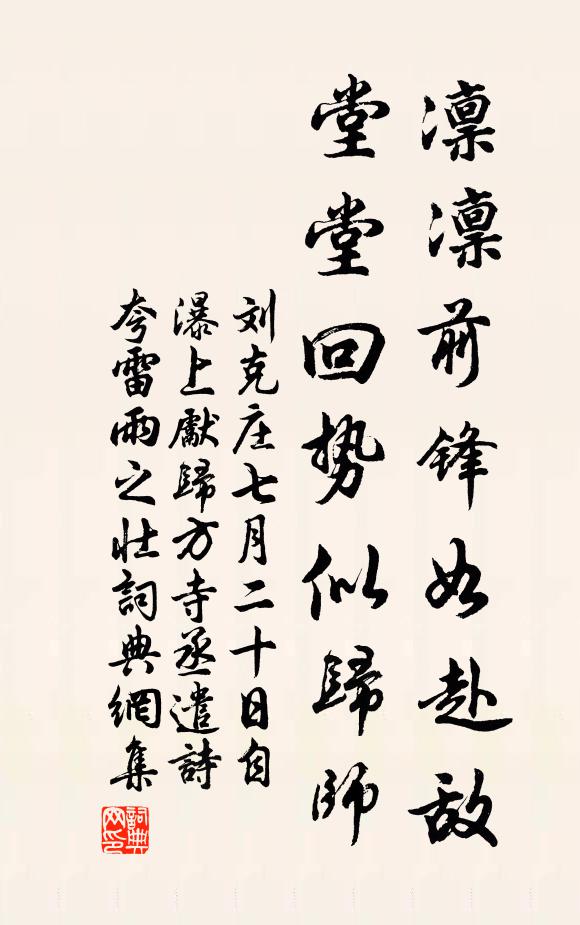 凛凛前锋如赴敌
堂堂回势似歸师
刘克庄七月二十日自
瀑上獻歸方寺丞遣詩
夸雷雨之壮詞典網集
詞典网印